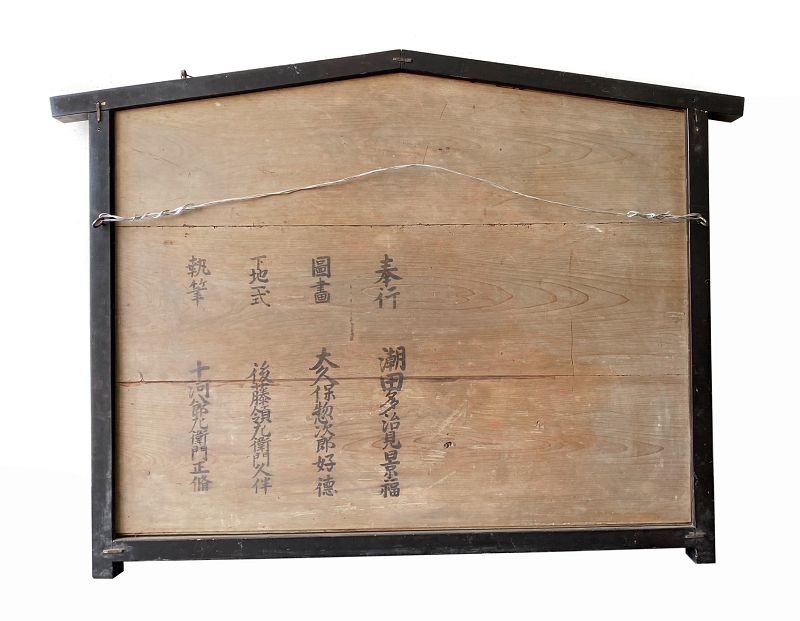 奉行 潮田多治見景福
圖畫 大久保惣次郎好德
下地一式 後藤領左衛門久伴
執筆 十河節左衛門正脩